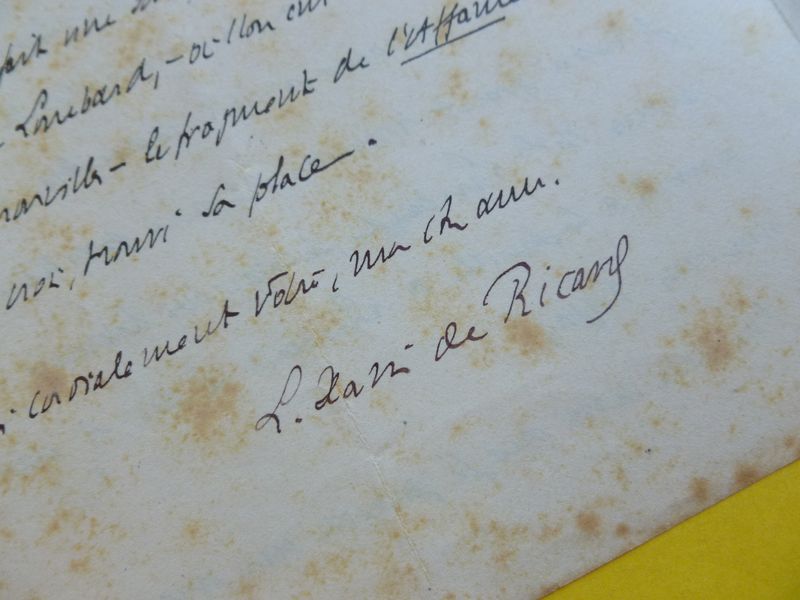 fait une
Lombard, – où l'on
– le fragment de l'Affamé
trouvé sa place.
cordialement vôtre, mon cher ami.
L. Xavier de Ricard